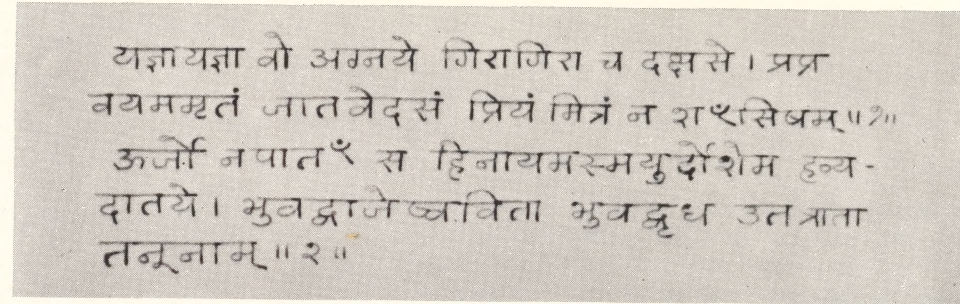 यज्ञायज्ञा वो अग्नये गिरागिरा च दक्षसे। प्रप्र
वयममृतं जातवेदसं प्रियं मित्रं न शꣳसिषम्॥१॥
ऊर्जो नपातꣳ स हिनायमस्मयुर्दाशेम हव्य-
दातये। भुवद्वाजेष्वविता भुवद्वृध उत त्राता
तनूनाम्॥२॥